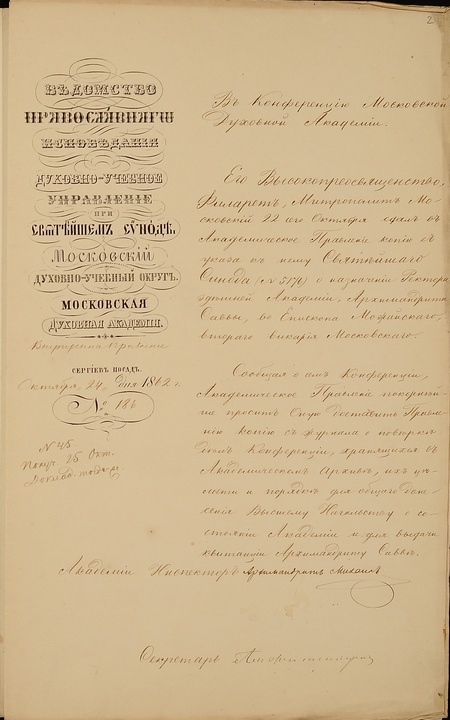 2
ВѢДОМСТВО
ПРАВОСЛАВНАГО
ИСПОВѢДАНІЯ
ДУХОВНО-УЧЕБНОЕ
УПРАВЛЕНІЕ
ПРИ
СВЯТѢЙШЕМЪ СѴНОДѢ.
МОСКОВСКІЙ
ДУХОВНО-УЧЕБНЫЙ ОКРУГЪ.
МОСКОВСКАЯ
ДУХОВНАЯ АКАДЕМІЯ.
Внутреннее Правленіе
СЕРГІЕВЪ ПОСАДЪ.
Октября, 24 дня 1862 г.
№ 186
№ 45
Получ. 25 Окт.
Въ Конференцію Московской
Духовной Академіи.
Его Высокопреосвященство,
Филаретъ, Митрополитъ Мо-
сковскій 22 сего Октября сдалъ въ
Академическое Правленіе копію съ
указа къ нему Святѣйшаго
Синода (№ 5174) о назначеніи Ректора
здѣшней Академіи, Архимандрита
Саввы, во Епископа Можайскаго,
втораго викарія Московскаго.
Сообщая о семъ Конференціи,
Академическое Правленіе покорнѣй-
ше проситъ Оную доставить Правле-
нію копію съ журнала о повѣркѣ
дѣлъ Конференціи, хранящихся въ
Академическомъ Архивѣ, ихъ цѣ-
лости и порядкѣ для общаго доне-
сенія Высшему Начальству о со-
стояніи Академіи и для выдачи
квитанціи Архимандриту Саввѣ.
Академіи Инспекторъ Архимандритъ Михаилъ
Секретарь